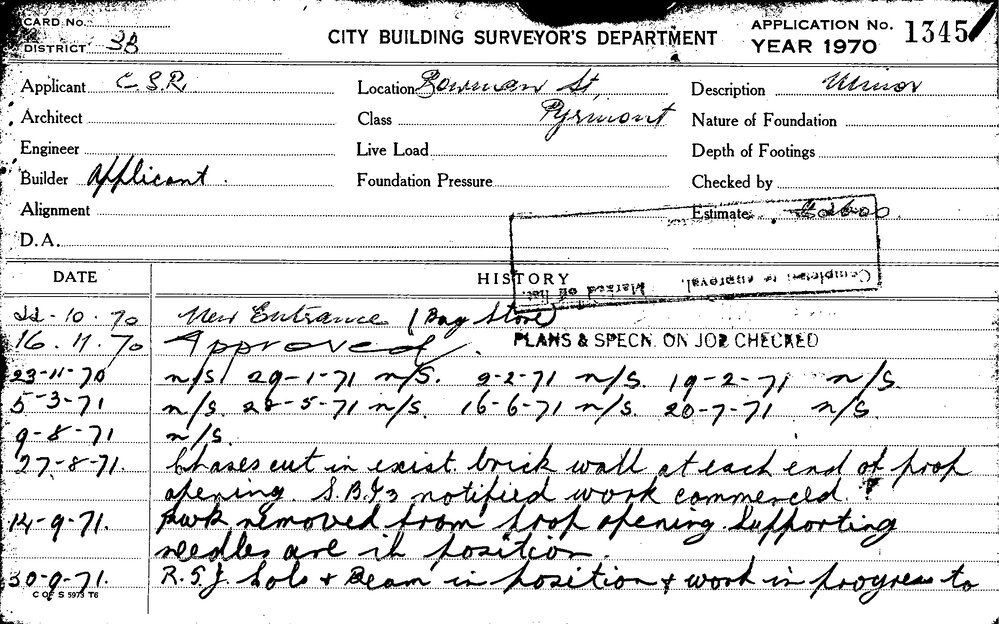 CARD No.
DISTRICT 3B
CITY BUILDING SURVEYOR'S DEPARTMENT
APPLICATION No. 1345
YEAR 1970
Applicant C.S.R.
Location Bowman St,
Description Minor
Architect
Class Pyrmont
Nature of Foundation
Engineer
Live Load
Depth of Footings
Builder Applicant.
Foundation Pressure
Checked by
Alignment
Estimate
D.A.
Completion to approval.
Marked off list.
DATE HISTORY
22-10-70 New Entrance (Bag Store)
16.11.70 Approved. PLANS & SPECN. ON JOB CHECKED
23-11-70 n/s/ 29-1-71 n/s. 9-2-71 n/s. 19-2-71 n/s.
5-3-71 n/s. 28-5-71 n/s. 16-6-71 n/s. 20-7-71 n/s
9-8-71 n/s.
27-8-71. Chases cut in exist. brick wall at each end of prop
opening. notified work commenced.
14-9-71. removed from prop opening. Supporting
needles are in position.
30-9-71. R.S.J. & Beam in position & work in progress to
C OF S 5973 T6